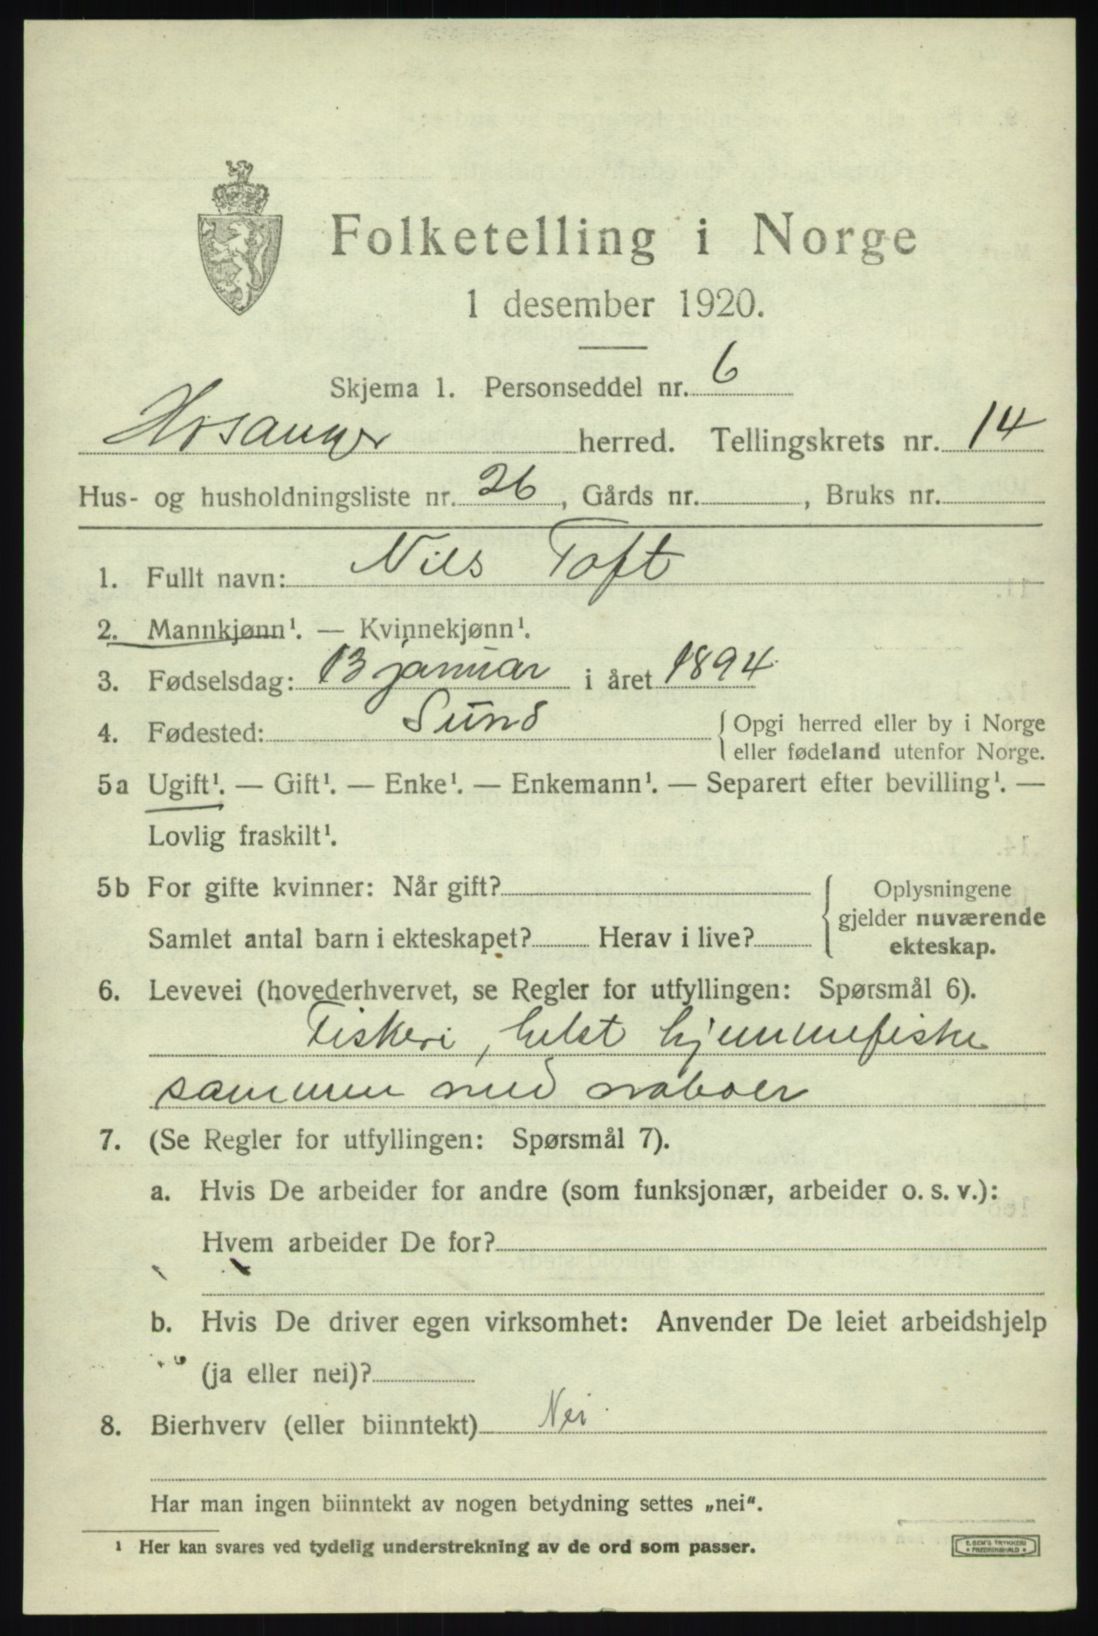 Folketelling i Norge
1 desember 1920.
Skjema 1. Personseddel nr. 6
Hosanger herred. Tellingskrets nr. 14
Hus- og husholdningsliste nr. 26, Gårds nr. , Bruks nr.
1. Fullt navn: Nils Toft
2. Mannkjønn¹. — Kvinnekjønn¹.
3. Fødselsdag: 13 januar i året 1894
4. Fødested: Sund {Opgi herred eller by i Norge
eller fødeland utenfor Norge.
5a Ugift¹. — Gift¹. — Enke¹. — Enkemann¹. — Separert efter bevilling¹. —
Lovlig fraskilt¹.
5b For gifte kvinner: Når gift? { Oplysningene
gjelder nuværende
Samlet antal barn i ekteskapet? Herav i live?
ekteskap.
6. Levevei (hovederhvervet, se Regler for utfyllingen: Spørsmål 6).
Fiskeri, helst hjemmefiske
sammen med naboer
7. (Se Regler for utfyllingen: Spørsmål 7).
a. Hvis De arbeider for andre (som funksjonær, arbeider o. s. v.):
Hvem arbeider De for?
b. Hvis De driver egen virksomhet: Anvender De leiet arbeidshjelp
(ja eller nei)?
8. Bierhverv (eller biinntekt) Nei
Har man ingen biinntekt av nogen betydning settes „nei".
¹ Her kan svares ved tydelig understrekning av de ord som passer.
E. SEM'S TRYKKERI
FREDRIKSHALD